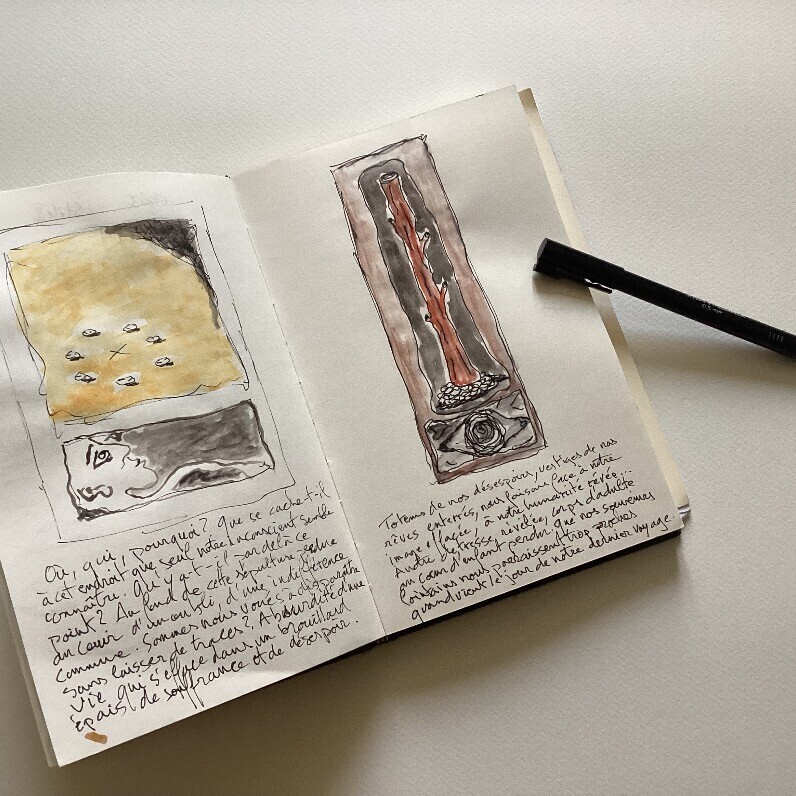 Où, qui, pourquoi? Que se cache-t-il
à cet endroit que seul notre inconscient semble
connaître. Qu'y a-t-il par delà ce
point? Au fond de cette sépulture perdue
au cœur d'un oubli, d'une indifférence
commune. Sommes nous voués à disparaître
sans laisser de traces? Absurdité d'une
vie qui s'efface dans un brouillard
épais de souffrance et de désespoir.
Totems de nos désespoirs, vestiges de nos
rêves enterrés, nous laissons face à notre
image effacée, à notre humanité
détresse révélée, corps d'adulte
au cœur d'enfant perdu que nos souvenirs
lointains nous paraissent trop proches
quand vient le jour de notre dernier voyage.